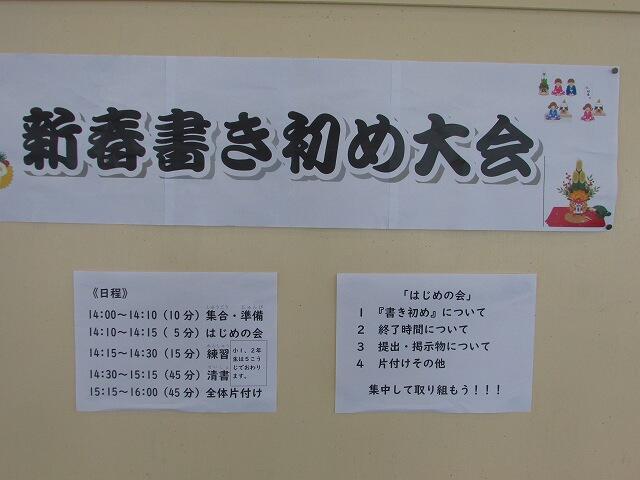 新春書き初め大会
《日程》
14:00～14:10(10分)集合・準備
14:10～14:15( 5分)はじめの会
14:15～14:30(15分)練習
14:30～15:15(45分)清書
小1、2年
生は5こう
じでおわり
ます。
15:15～16:00(45分)全体片付け
「はじめの会」
1 『書き初め』について
2 終了時間について
3 提出・掲示物について
4 片付けその他
集中して取り組もう!!!